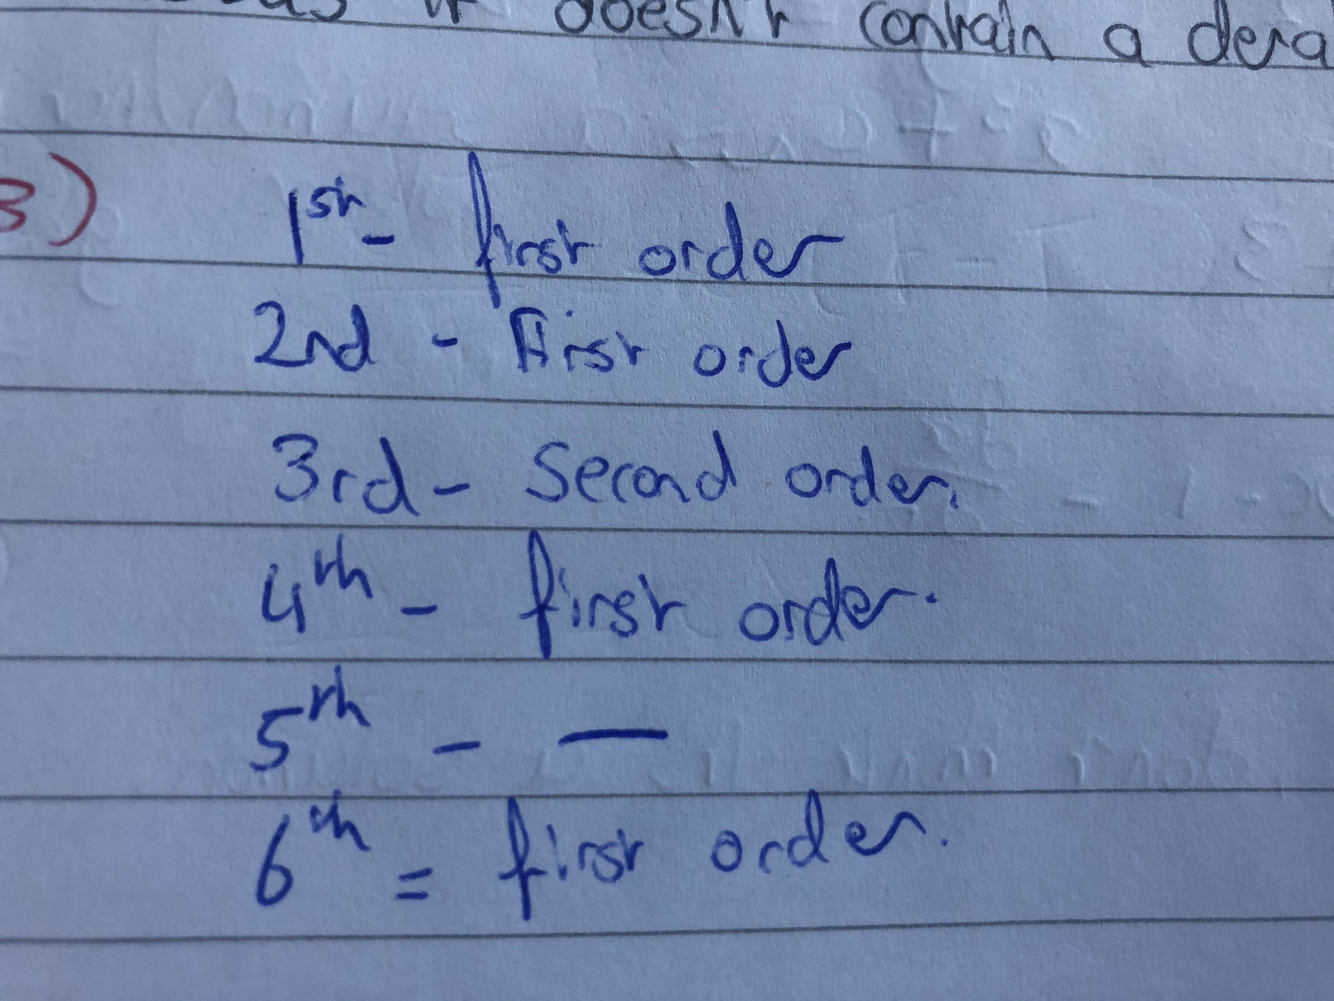 doesn't contain a
3) 1st - first order
2nd - First order
3rd - Second order.
4th - first order.
5th - —
6th = first order.